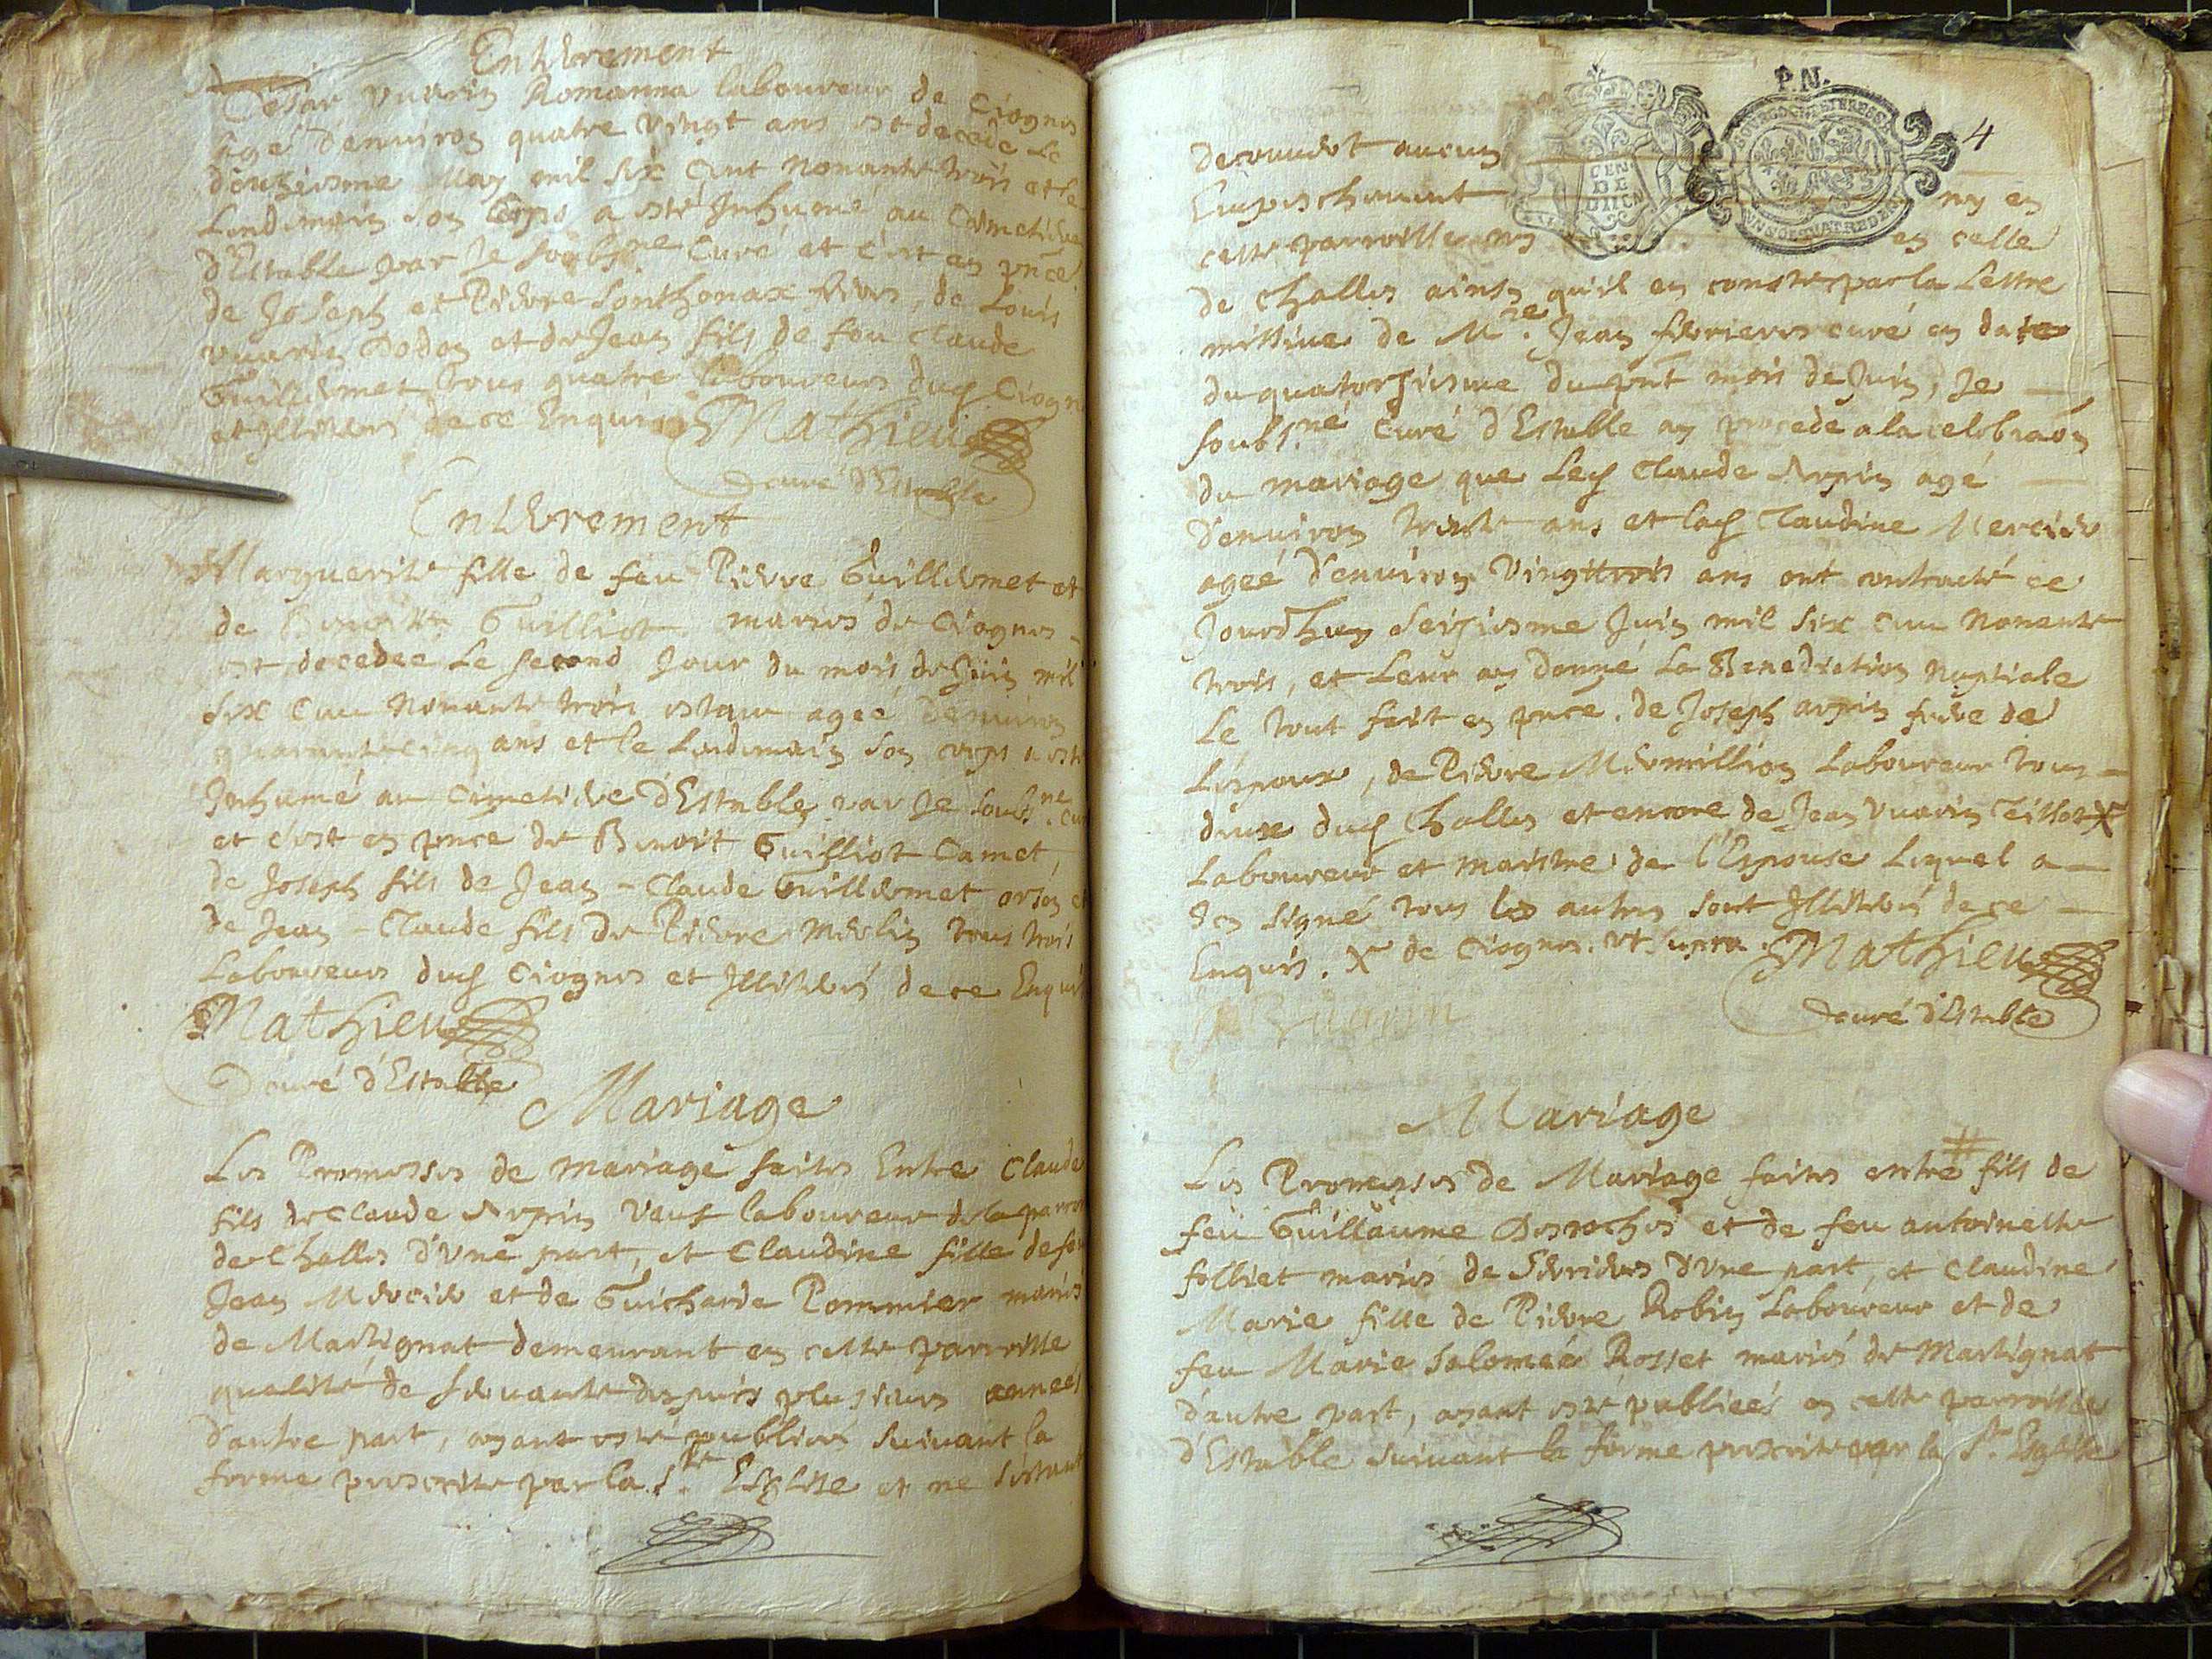 Enterrement
Cesar Vuarin Romanna laboureur de Ciognes
agé d'environ quatre vingt ans est decedé Le
douziesme May mil six cent nonante trois et le
Lendemain son corps a esté Inhumé au Cimetiere
d'Estable par Je soubs.né Curé et c'est en pnce
de Joseph et Pierre Sonthonax freres, de Louis
vuarin Dodon et de Jean fils de feu Claude
Guillermet tous quatre laboureurs dud Ciognes
et Illiterés de ce Enquis Mathieu
curé d'Estable
Enterrement
Marguerite fille de feu Pierre Guillermet et
de Benoitte Guilliot mariés de Ciognes
est decedee Le second Jour du mois de Juin mil
six cen Nonante trois estan ageé d'environ
quarante cinq ans et le Lendemain son corps a esté
Inhumé au Cimetiere d'Estable par Je soubs.né
et c'est en pnce de Benoit Guilliot Camet,
de Joseph fils de Jean-Claude Guillermet orson et
de Jean-Claude fils de Pierre Merlin tous trois
Laboureurs dud Ciognes et Illiterés de ce Enquis
Mathieu
curé d'Estable
Mariage
Les Promesses de mariage faites Entre Claude
fils de Claude Arpin veuf laboureur de la parroi
de Challes d'Vne part, et Claudine fille de feu
Jean Mercier et de Guicharde Pommier mariés
de Martignat demeurant en cette parroisse
qualité de servante despuis plusieurs anneés
d'autre part, ayant esté publieés suivant la
forme prescrite par la S.te Esglise et ne s'estant
4
P.N.
decouvert aucun
Empeschement ny en
cette parroisse ny en celle
de Challes ainsy qu'il en conste par la Lettre
missive de M.re Jean curé en date
du quatorziesme du pnt mois de Juin, Je
soubs.né Curé d'Estable ay procedé a la celebraon
du mariage que Led Claude Arpin agé
d'environ trente ans et lad Claudine Mercier
ageé d'environ Vingttrois ans ont contracté ce
Jourd'huy seiziesme Juin mil six cen Nonante
trois, et Leur ay donné La Benediction Nuptiale
Le tout fait en pnce. de Joseph arpin frere de
L'espoux, de Pierre Mermillion Laboureur tous
deux dud Challes et encore de Jean Vuarin Teillot X
Laboureur et maistre de l'Espouse Lequel a
Icy signé tous les autres sont Illiterés de ce
Enquis. X de Ciognes. vt supra. Mathieu
curé d'Estable
Mariage
Les Promesses de Mariage faites entre # fils de
feu Guillaume Desroches et de feu antoinette
folliet mariés de d'Vne part, et Claudine
Marie fille de Pierre Robin Laboureur et de
feu Marie Salomeé Rosset mariés de Martignat
d'autre part, ayant esté publieés en cette parroisse
d'Estable suivant la forme prescrite par la S.te Esglise